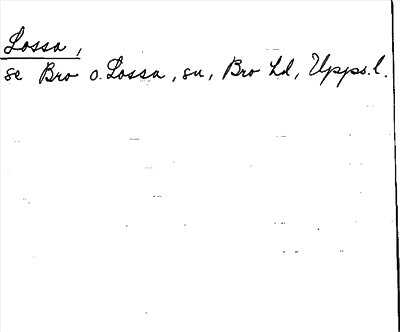 Lossa,
se Bro o. Lossa, sn, Bro hd, Upps. l.